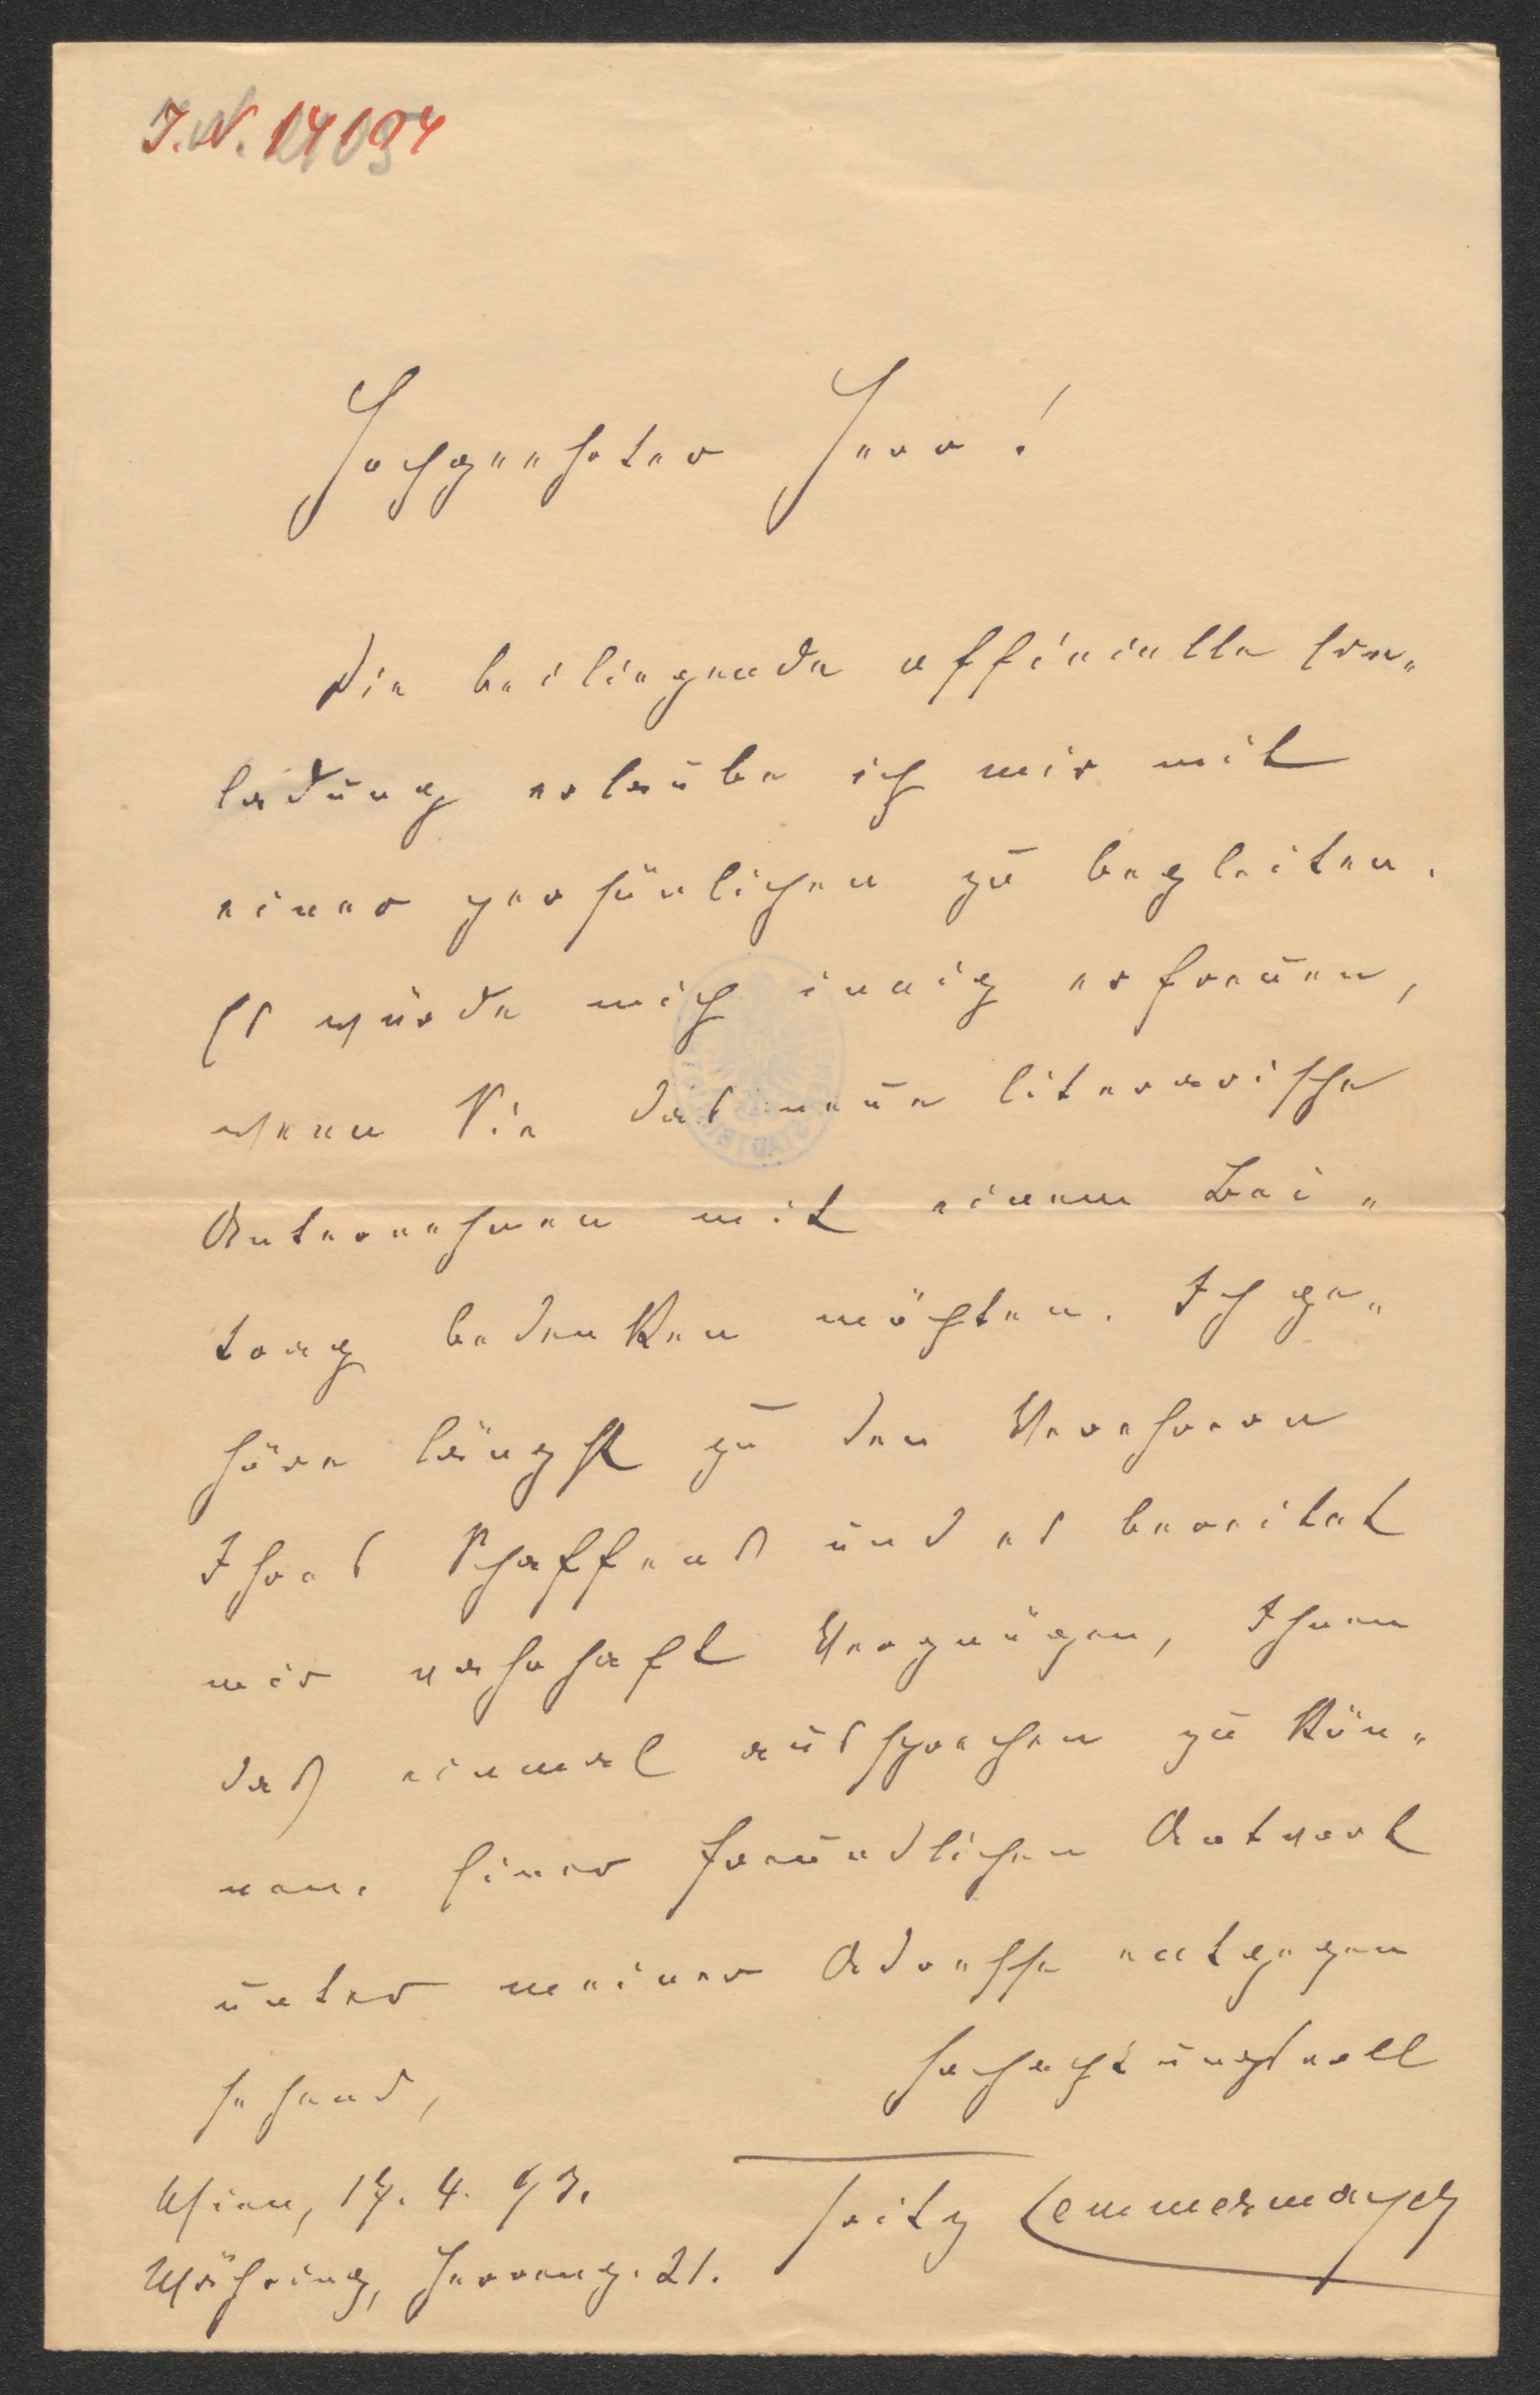 J.N. 14194
Hochgeehrter Herr!
Die beiliegende officielle Ein-
ladung erlaube ich mir mit
einer persönlichen zu begleiten.
Es würde mich innig erfreuen,
wenn Sie das neue literarische
Unternehmen mit einem Bei-
trag bedenken möchten. Ich ge-
höre längst zu den Verehrern
Ihres Schaffens und es bereitet
mir wahrhaft Vergnügen, Ihnen
das einmal aussprechen zu kön-
nen. Einer freundlichen Antwort
unter meiner Adresse entgegen
sehend,
hochachtungsvoll
Fritz Lemmermayer
Wien, 17. 4. 93.
Währing, Herreng. 21.